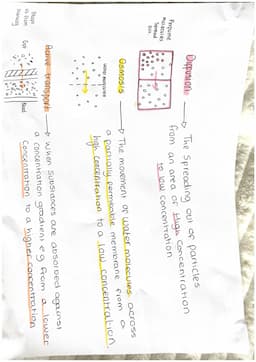 Diffusion → The spreading out of particles
from an area of High concentration
to low concentration
Perfume
molecules
Spread
out
Osmosis → The movement of water molecules across
a partially permeable membrane from a
high concentration to a low concentration.
water molecules
Active transport → when substances are absorbed against
a concentration gradient e.g from a lower
concentration to a higher concentration